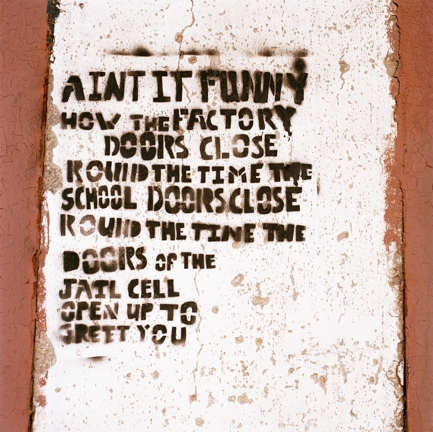 AINT IT FUNNY
HOW THE FACTORY
DOORS CLOSE
ROUND THE TIME THE
SCHOOL DOORS CLOSE
ROUND THE TINE THE
DOORS OF THE
JAIL CELL
OPEN UP TO
GREET YOU